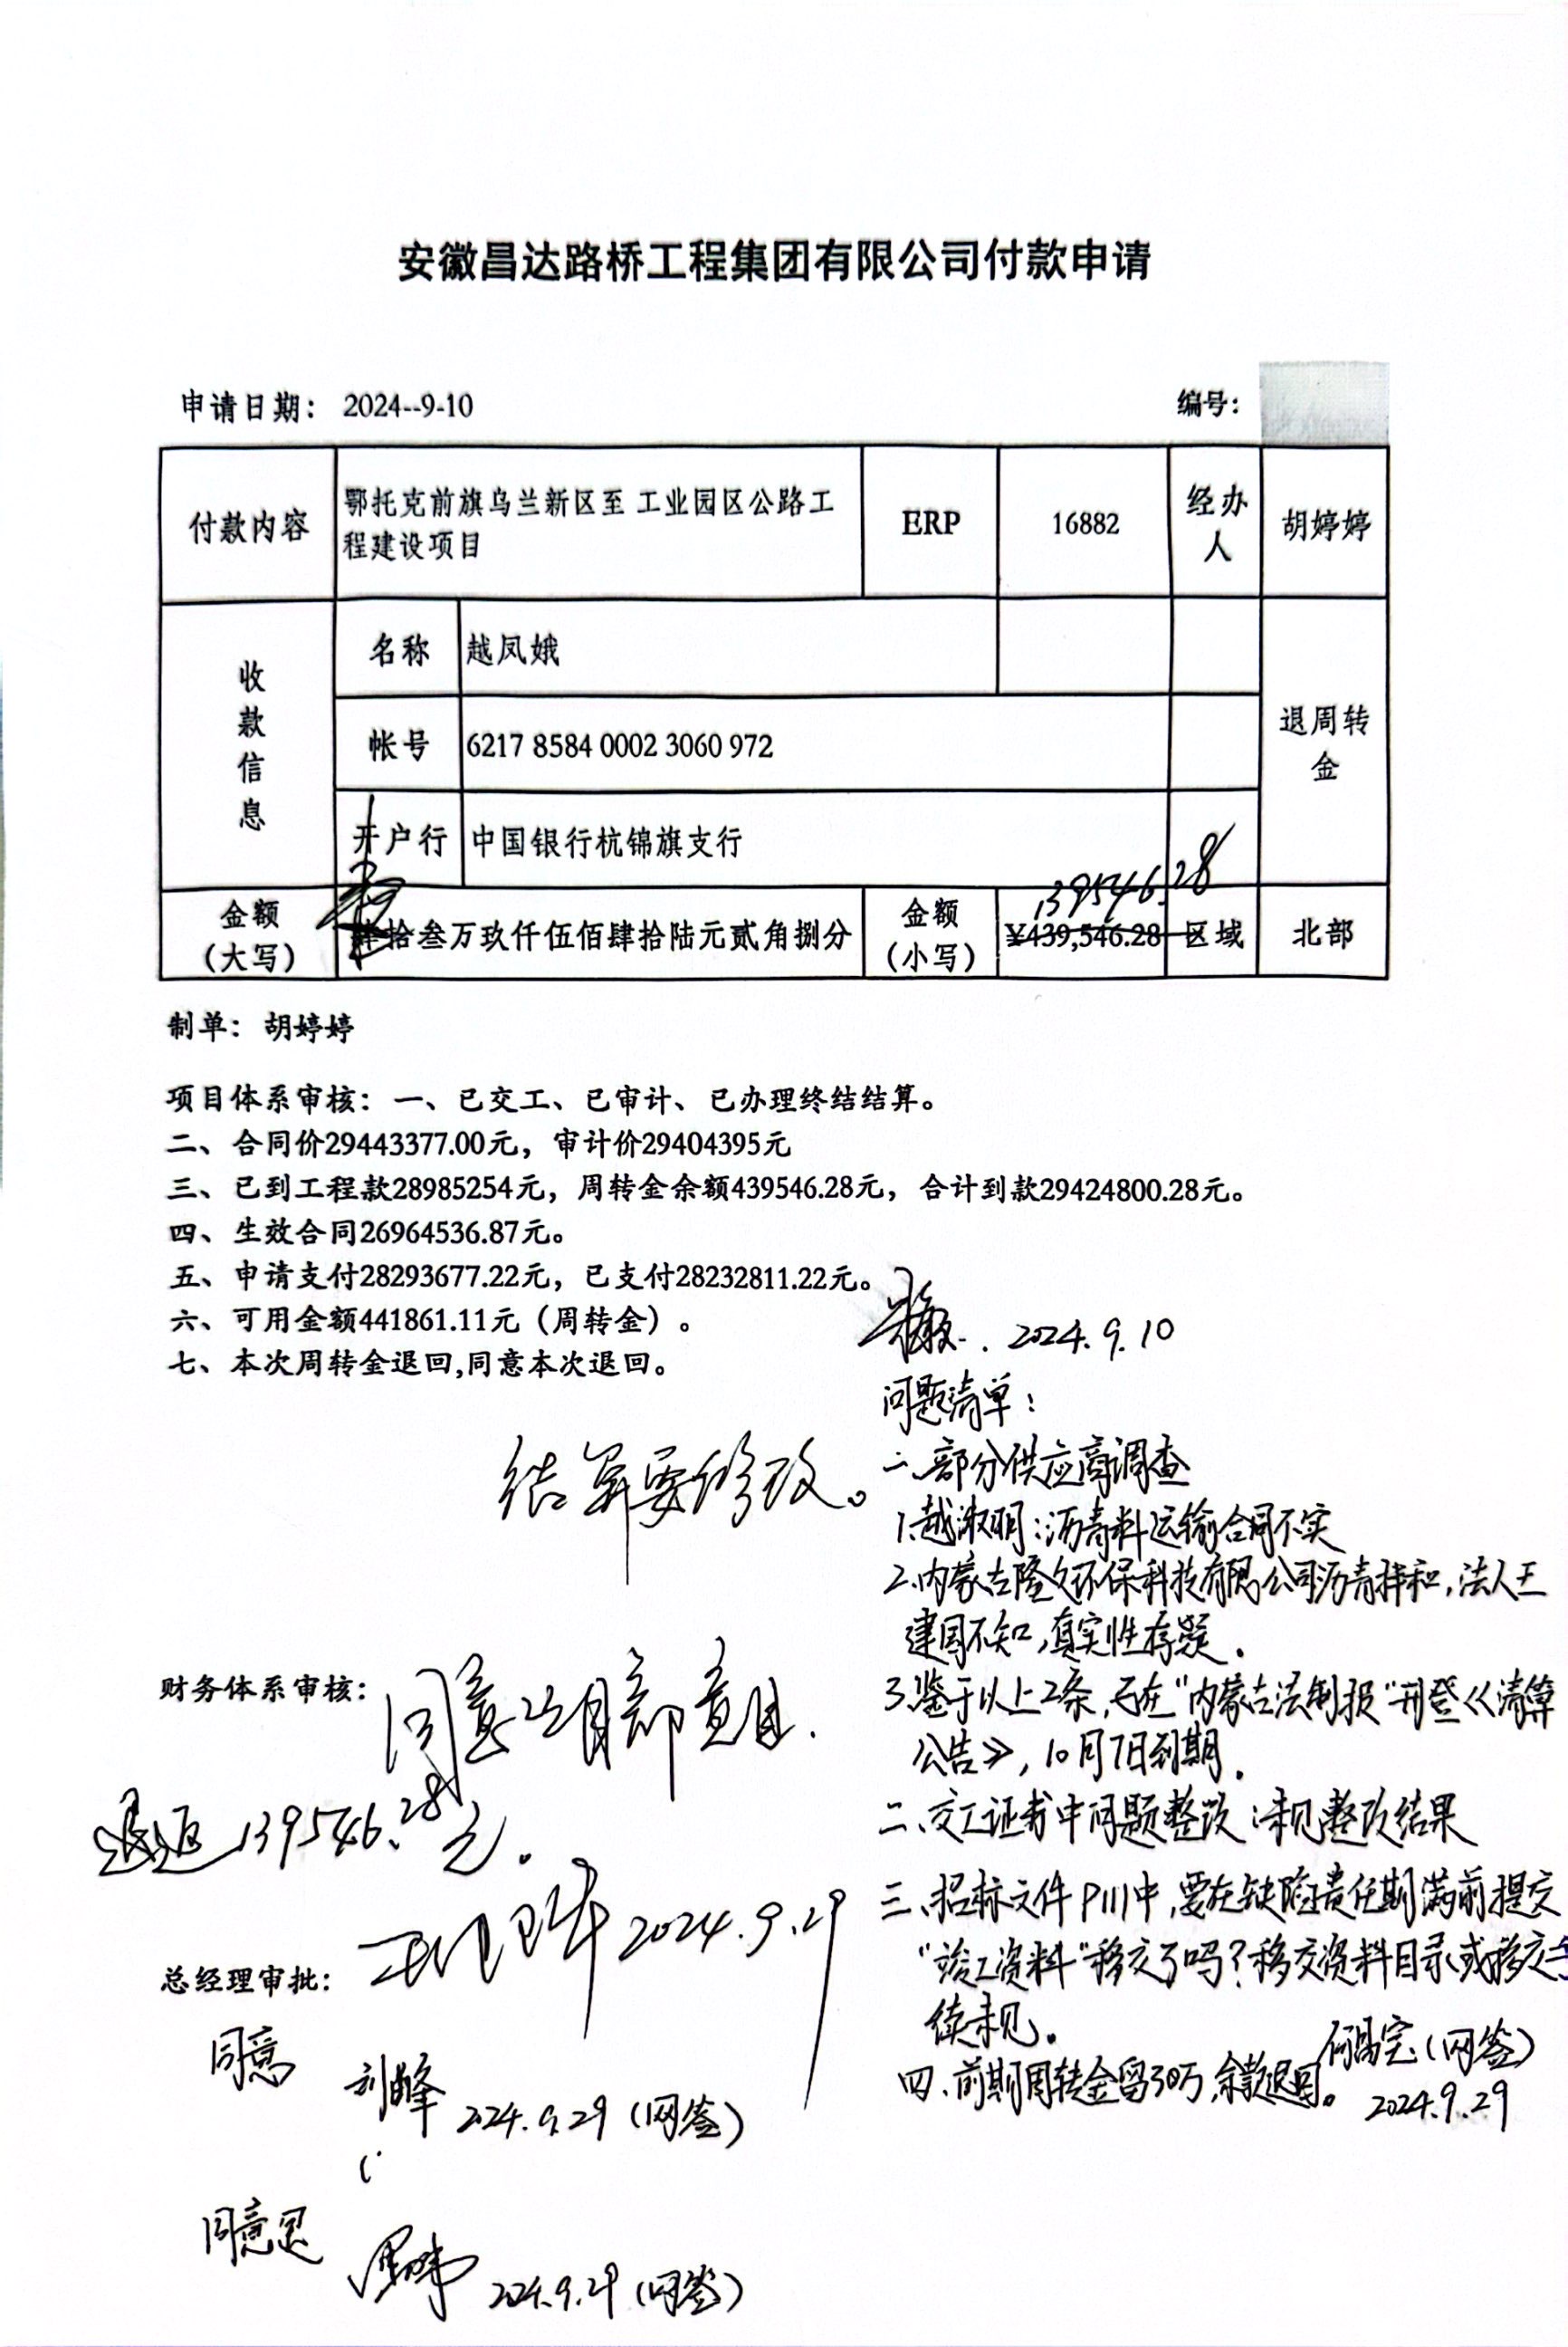 安徽昌达路桥工程集团有限公司付款申请
申请日期： 2024--9-10 编号：
付款内容 鄂托克前旗乌兰新区至 工业园区公路工程建设项目 ERP 16882 经办人 胡婷婷
收款信息 名称 越凤娥 退周转金
帐号 6217 8584 0002 3060 972
开户行 中国银行杭锦旗支行
139546.28
金额（大写） 拾叁万玖仟伍佰肆拾陆元贰角捌分 金额（小写） ¥439,546.28 区域 北部
制单： 胡婷婷
项目体系审核：一、已交工、已审计、已办理终结结算。
二、合同价29443377.00元，审计价29404395元
三、已到工程款28985254元，周转金余额439546.28元，合计到款29424800.28元。
四、生效合同26964536.87元。
五、申请支付28293677.22元，已支付28232811.22元。
六、可用金额441861.11元（周转金）。
七、本次周转金退回,同意本次退回。
2024.9.10
问题清单：
一、部分供应商调查
结算要修改。
1.越淑明：沥青料运输合同不实
2.内蒙古隆久环保科技有限公司沥青拌和，法人王
建国不知，真实性存疑。
3.鉴于以上2条，已在"内蒙古法制报"刊登《清算
公告》，10月7日到期。
二、交工证书中问题整改：未见整改结果
三、招标文件P111中，要在缺陷责任期满前提交
"竣工资料"移交了吗？移交资料目录或移交手
续未见。
四、前期周转金留30万，余款退回。
何昌宝（网签）
2024.9.29
财务体系审核：
同意项目部意见.
退返139546.28元。
2024.9.29
总经理审批：
同意
刘峰 2024.9.29（网签）
同意
周 2024.9.29（网签）